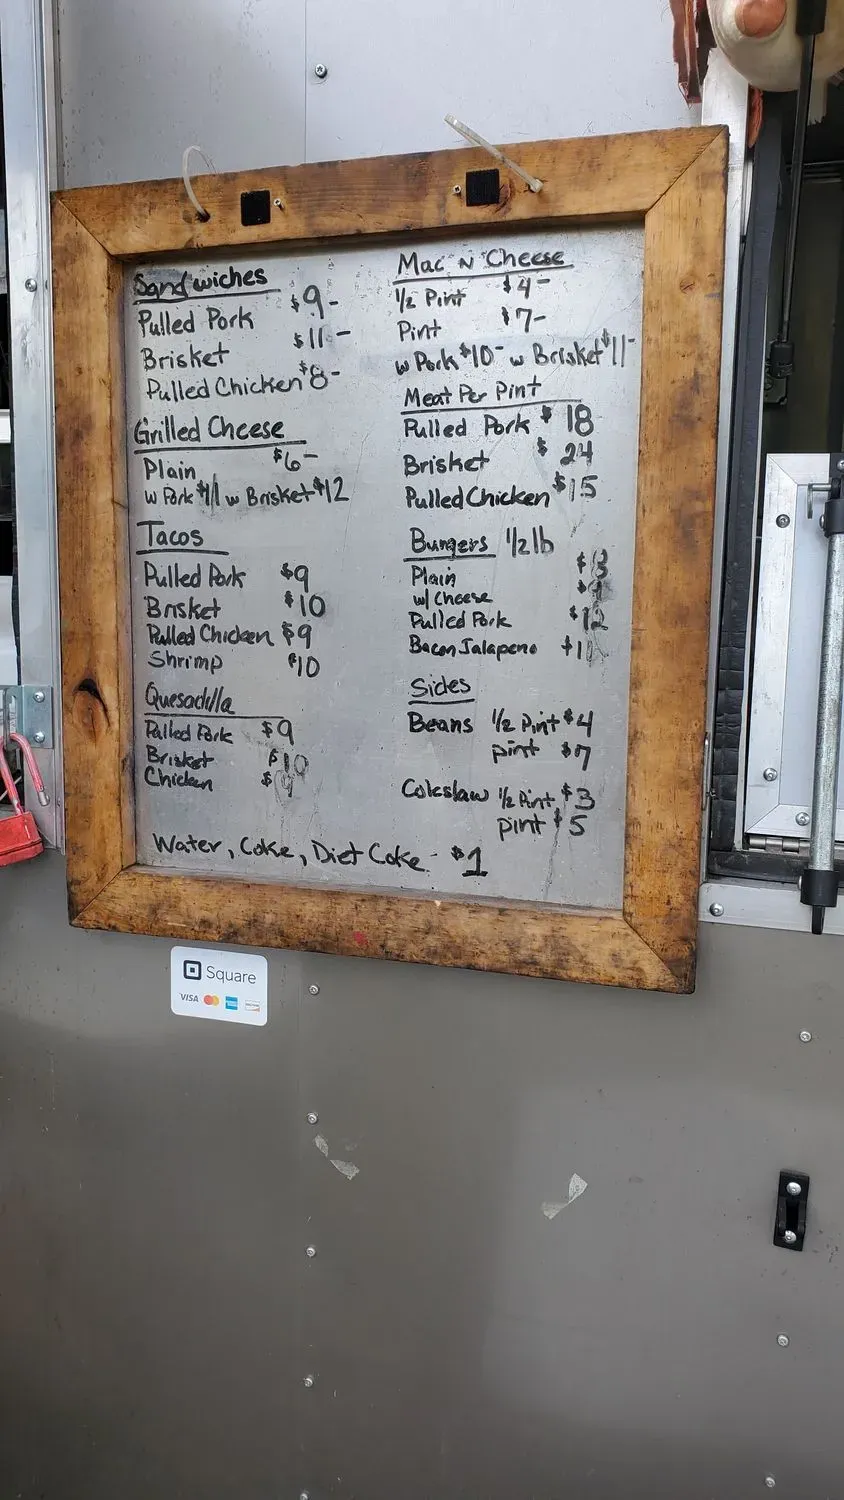 Sandwiches
Pulled Pork $9-
Brisket $11-
Pulled Chicken $8-
Grilled Cheese
Plain $6-
w Pork $11 w Brisket $12
Tacos
Pulled Pork $9
Brisket $10
Pulled Chicken $9
Shrimp $10
Quesadilla
Pulled Pork $9
Brisket $10
Chicken $9
Mac N Cheese
1/2 Pint $4-
Pint $7-
w Pork $10- w Brisket $11-
Meat Per Pint
Pulled Pork $18
Brisket $24
Pulled Chicken $15
Burgers 1/2 lb
Plain
w/ Cheese
Pulled Pork $12
Bacon Jalapeno
Sides
Beans 1/2 Pint $4
pint $7
Coleslaw 1/2 Pint $3
pint $5
Water, Coke, Diet Coke - $1
Square
VISA